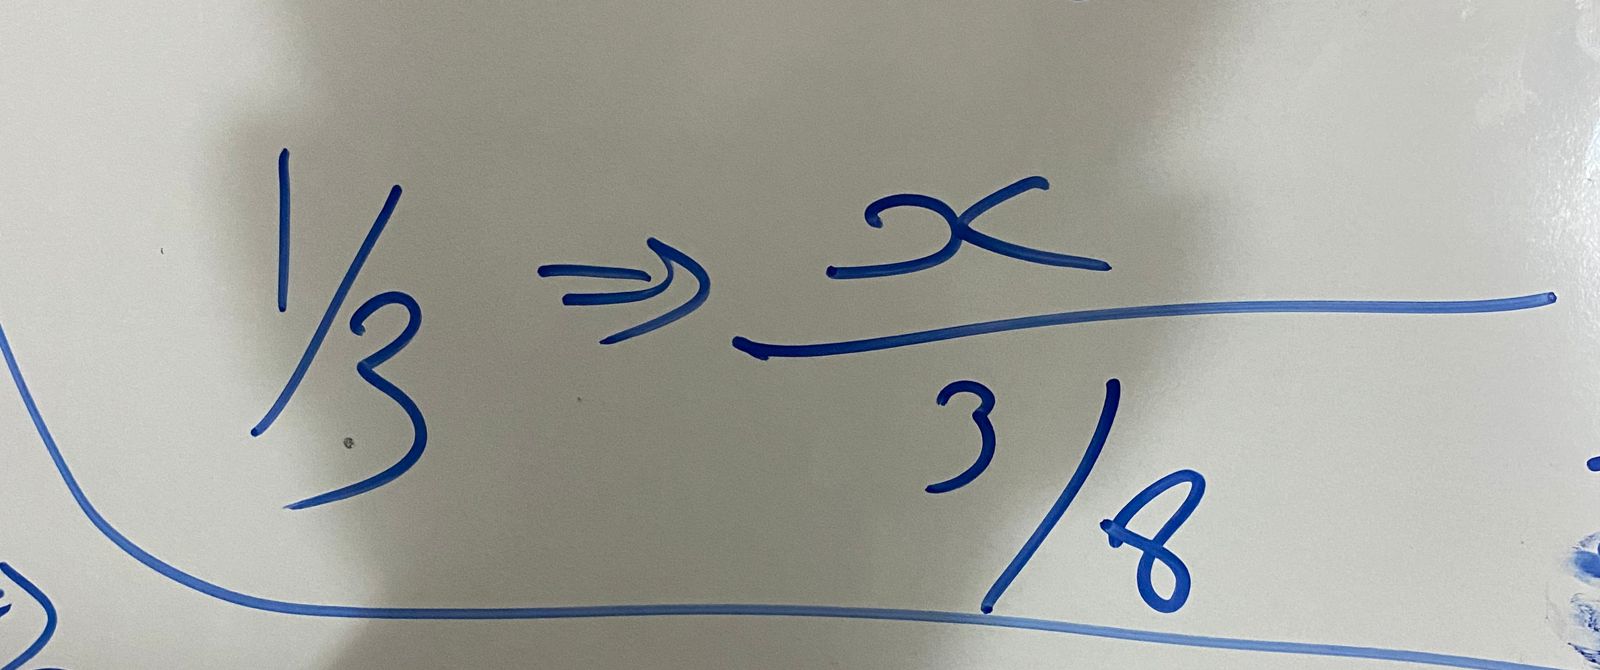 1/3 ⇒ x
3/8